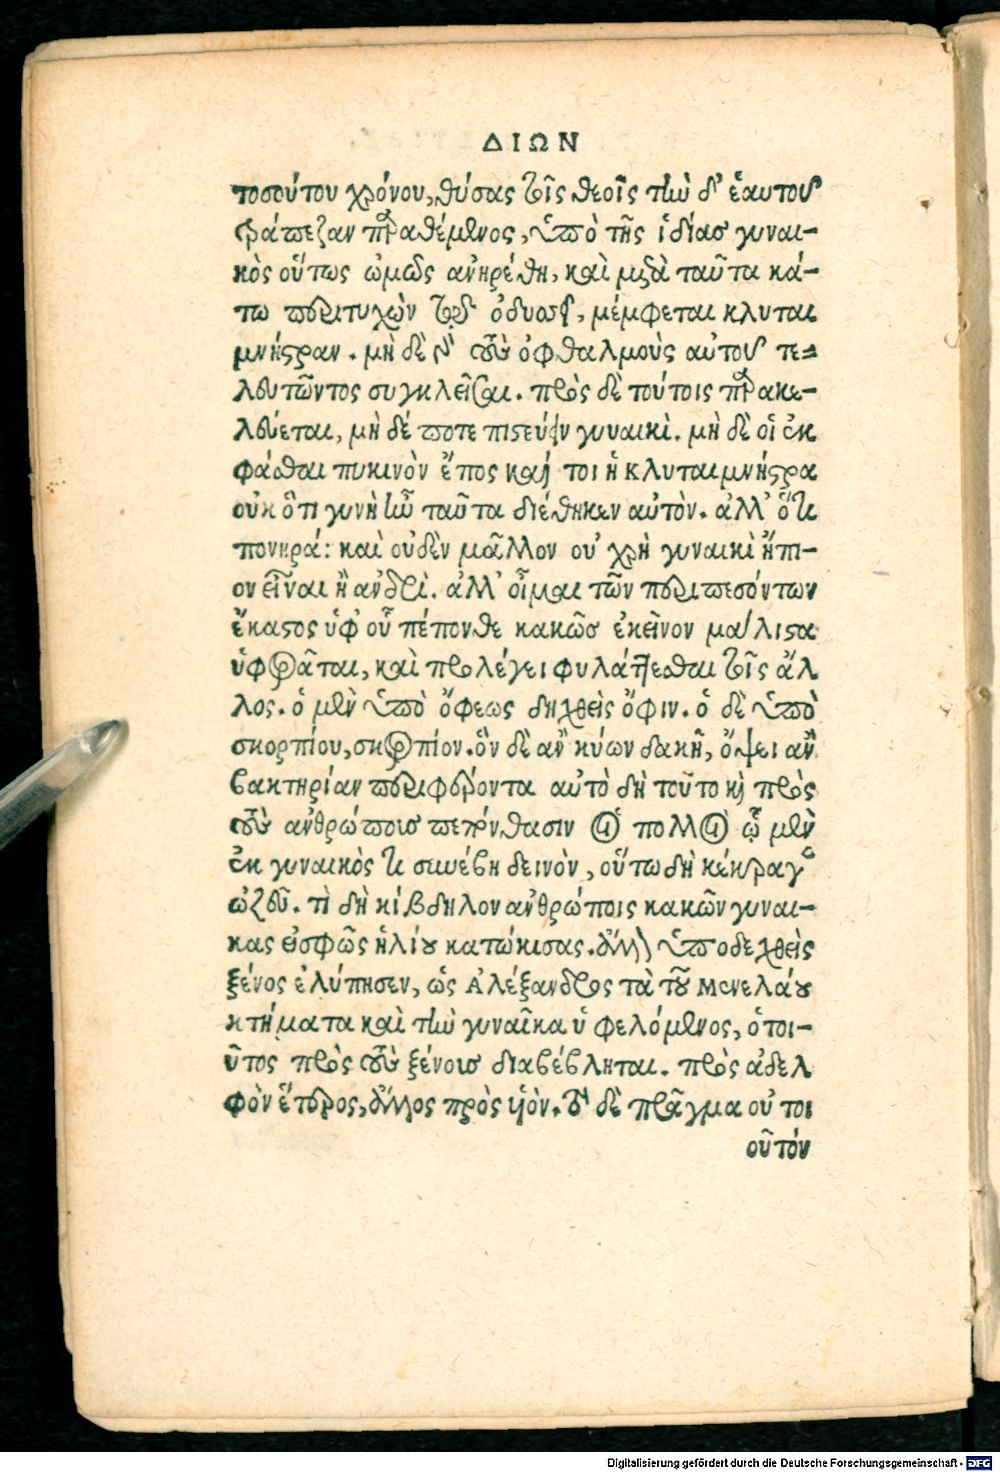 ΔΙΩΝ
τοσούτου χρόνου, θύσας τοῖς θεοῖς τὴν δ' ἑαυτοῦ
τράπεζαν παραθέμενος, ὑπὸ τῆς ἰδίας γυναι-
κὸς οὕτως ὠμῶς ἀνηρέθη, καὶ μετὰ ταῦτα κά-
τω περιτυχὼν τῷ ὀδυσσεῖ, μέμφεται κλυται
μνήστραν. μὴ δὲ γὰρ τοὺς ὀφθαλμοὺς αὐτοῦ τε-
λευτῶντος συγκλεῖσαι. πρὸς δὲ τούτοις παρακε-
λεύεται, μὴ δέ ποτε πιστεύειν γυναικὶ. μὴ δὲ οἱ ἐκ
φάσθαι πυκινὸν ἔπος καί τοι ἡ κλυταιμνήστρα
οὐκ ὅτι γυνὴ ἦν ταῦτα διέθηκεν αὐτὸν. ἀλλ' ὅτι
πονηρά: καὶ οὐδὲν μᾶλλον οὐ χρὴ γυναικὶ ἤπι-
ον εἶναι ἢ ἀνδρὶ. ἀλλ' οἶμαι τῶν περιπεσόντων
ἕκαστος ὑφ' οὗ πέπονθε κακῶς ἐκεῖνον μάλιστα
ὑφορᾶται, καὶ προλέγει φυλάττεσθαι τοῖς ἄλ
λος. ὁ μὲν ὑπὸ ὄφεως δηχθεὶς ὄφιν. ὁ δὲ ὑπὸ
σκορπίου, σκορπίον. ὃν δὲ ἂν κύων δακῆ, ὄψει ἂν
βακτηρίαν περιφέροντα αὐτὸ δὴ τοῦτο καὶ πρὸς
τοὺς ἀνθρώπους πεπόνθασιν οἱ πολλοὶ ᾧ μὲν
ἐκ γυναικὸς τι συνέβη δεινὸν, οὕτω δὴ κέκραγεν
ὠζεῦ. τὶ δὴ κίβδηλον ἀνθρώποις κακῶν γυναι-
κας εἰσφῶς ἡλίου κατώκισας. ἄλλον ὑποδεχθεὶς
ξένος ἐλύπησεν, ὡς Αλέξανδρος τὰ τοῦ Μενελάου
κτήματα καὶ τὴν γυναῖκα ὑφελόμενος, ὁ τοι-
οῦτος πρὸς τοὺς ξένους διαβέβληται. πρὸς ἀδελ
φὸν ἕτερος, ἄλλος πρὸς υἱόν. τὸ δὲ πρᾶγμα οὐ τοι
οῦτόν
Digitalisierung gefördert durch die Deutsche Forschungsgemeinschaft - DFG